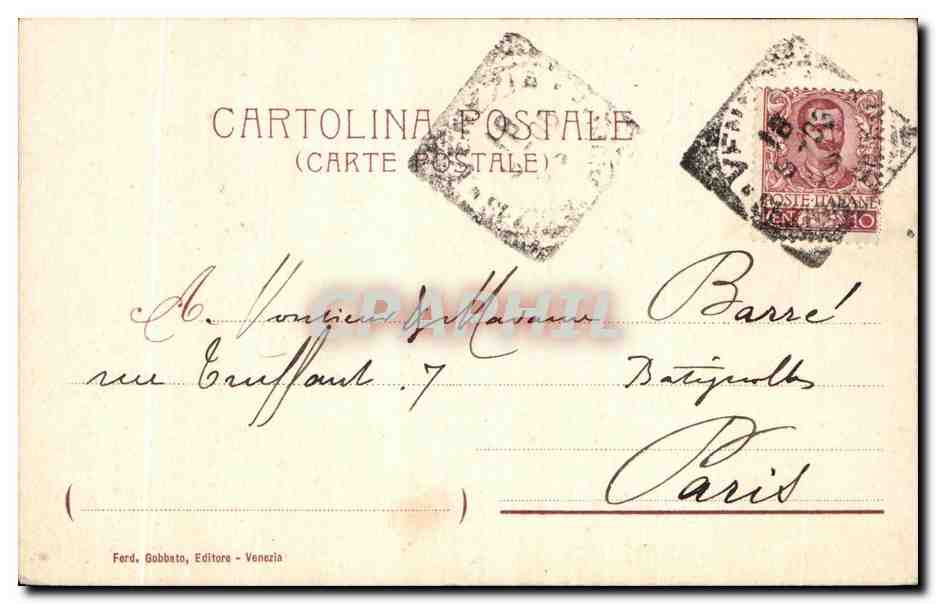 CARTOLINA POSTALE
(CARTE POSTALE)
POSTE ITALIANE
CENT. 10
A. Monsieur & Madame Barré
rue Truffaut. 7 Batignolles
Paris
( )
Ferd. Gobbato, Editore - Venezia
CPAPHIL